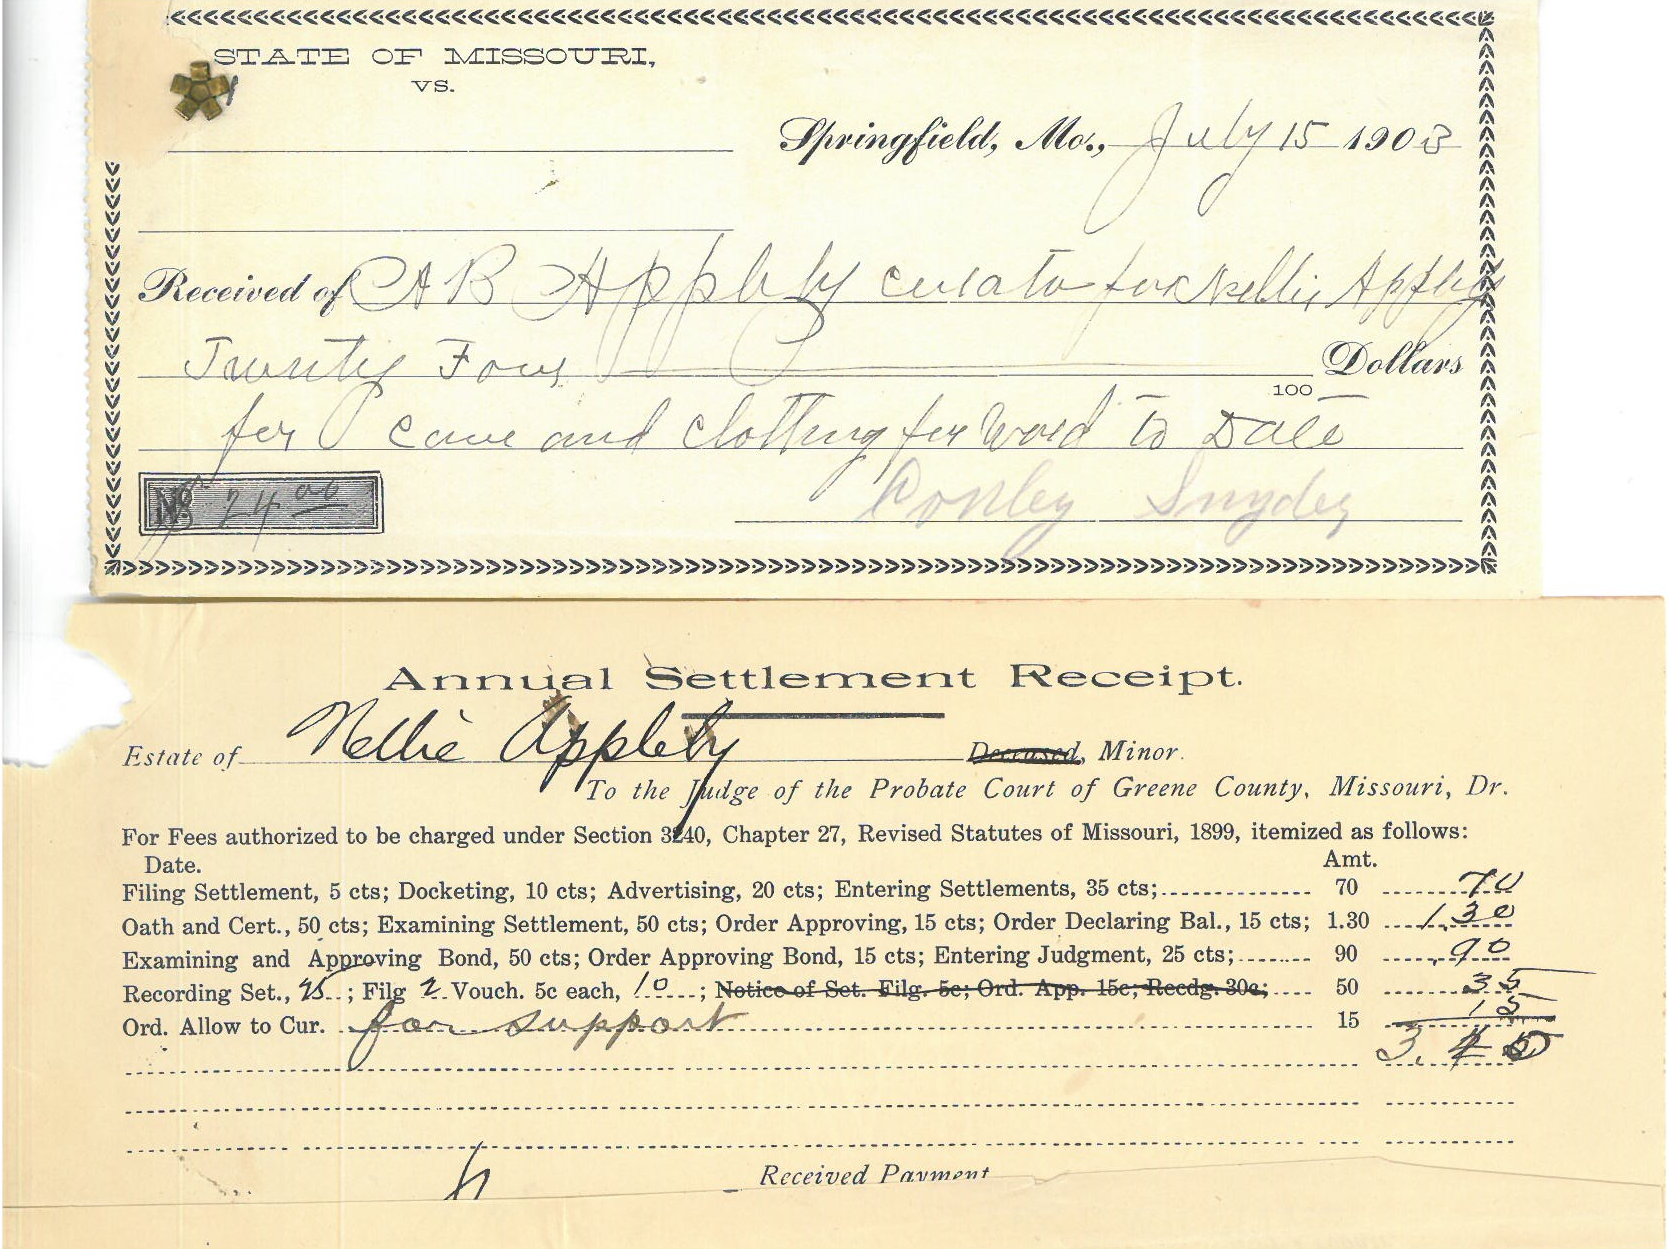 STATE OF MISSOURI,
VS.
Springfield, Mo., July 15 1903
Received of A B Appleby curator for Nellie Appleby
Twenty Four Dollars
100
for care and clothing for Ward to Date
$ 24 00
Conley Snyder
Annual Settlement Receipt.
Estate of Nellie Appleby Deceased, Minor.
To the Judge of the Probate Court of Greene County, Missouri, Dr.
For Fees authorized to be charged under Section 3240, Chapter 27, Revised Statutes of Missouri, 1899, itemized as follows:
Date. Amt.
Filing Settlement, 5 cts; Docketing, 10 cts; Advertising, 20 cts; Entering Settlements, 35 cts; 70 70
Oath and Cert., 50 cts; Examining Settlement, 50 cts; Order Approving, 15 cts; Order Declaring Bal., 15 cts; 1.30 1.30
Examining and Approving Bond, 50 cts; Order Approving Bond, 15 cts; Entering Judgment, 25 cts; 90 .90
Recording Set., 25 ; Filg 2 Vouch. 5c each, 10 ; Notice of Set. Filg. 5c; Ord. App. 15c; Recdg. 30c; 50 35
Ord. Allow to Cur. for support 15 15
3.40
Received Payment